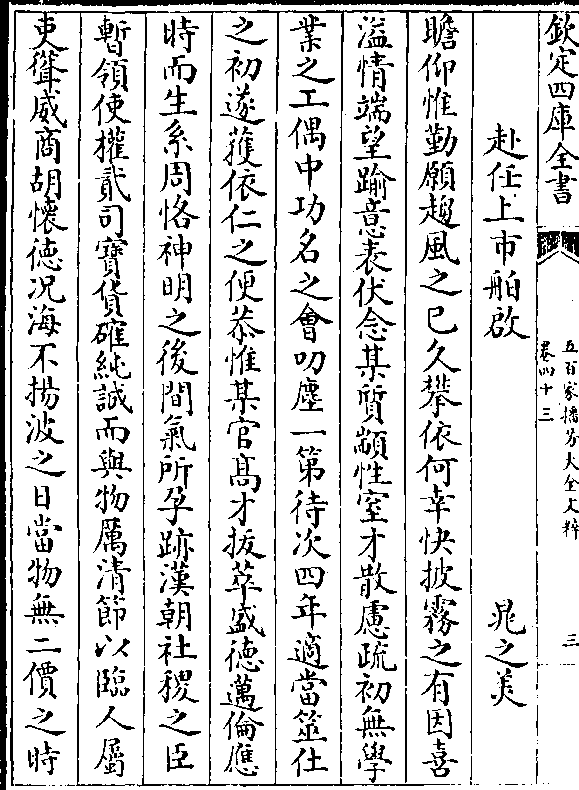 欽定四庫全書
五百家播芳大全文粹
卷四十三
三
赴任上市舶啟
晁之美
瞻仰惟勤願趨風之已久攀依何幸快披霧之有因喜
溢情端望踰意表伏念某質顓性窒才散慮疏初無學
業之工偶中功名之會叨塵一第待次四年適當筮仕
之初遂獲依仁之便恭惟某官髙才拔萃盛徳邁倫應
時而生系周恪神明之後間氣所孕跡漢朝社稷之臣
暫領使權貳司寶貨確純誠而與物厲清節以臨人屬
吏聳威商胡懷徳况海不揚波之日當物無二價之時